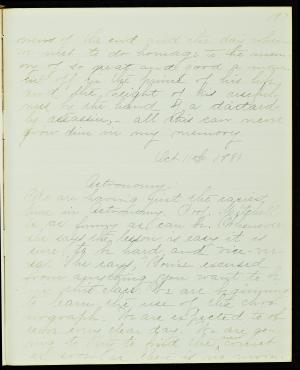 ment of the end and the day when
we met to do homage to the mem-
ory of so great and good a man
cut off in the prime of his life
and the height of his useful-
ness by the hand of a dastard-
ly assassin, - all this can never
grow dim in my memory.
Oct 11th 1881
Astronomy.
We are having just the easiest
time in astronomy. Prof. Mitchell
is as funny as can be. Whenever
she says the lesson is easy it is
sure to be hard, and vice-ver-
sa. She says, "You're excused
from anything you want to be
in first class. We are beginning
to learn the use of the chro-
nograph. We are expected to ob-
serve every clear day. We are go-
ing to try to find the new comet
as soon as there is no moon